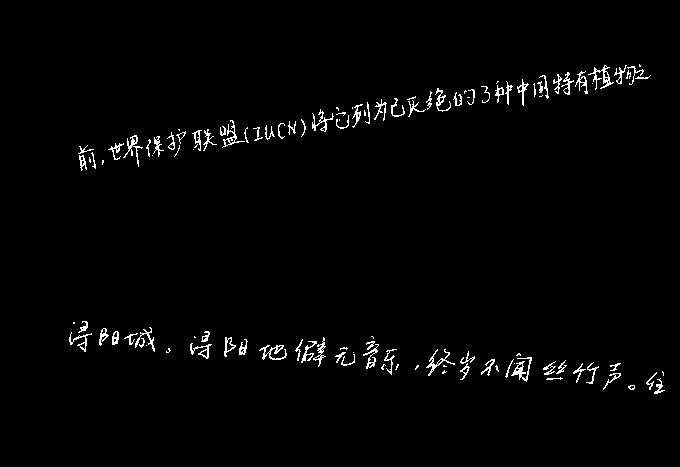 前,世界保护联盟(IUCN)将它列为已灭绝的3种中国特有植物之
浔阳城。浔阳地僻无音乐,终岁不闻丝竹声。住